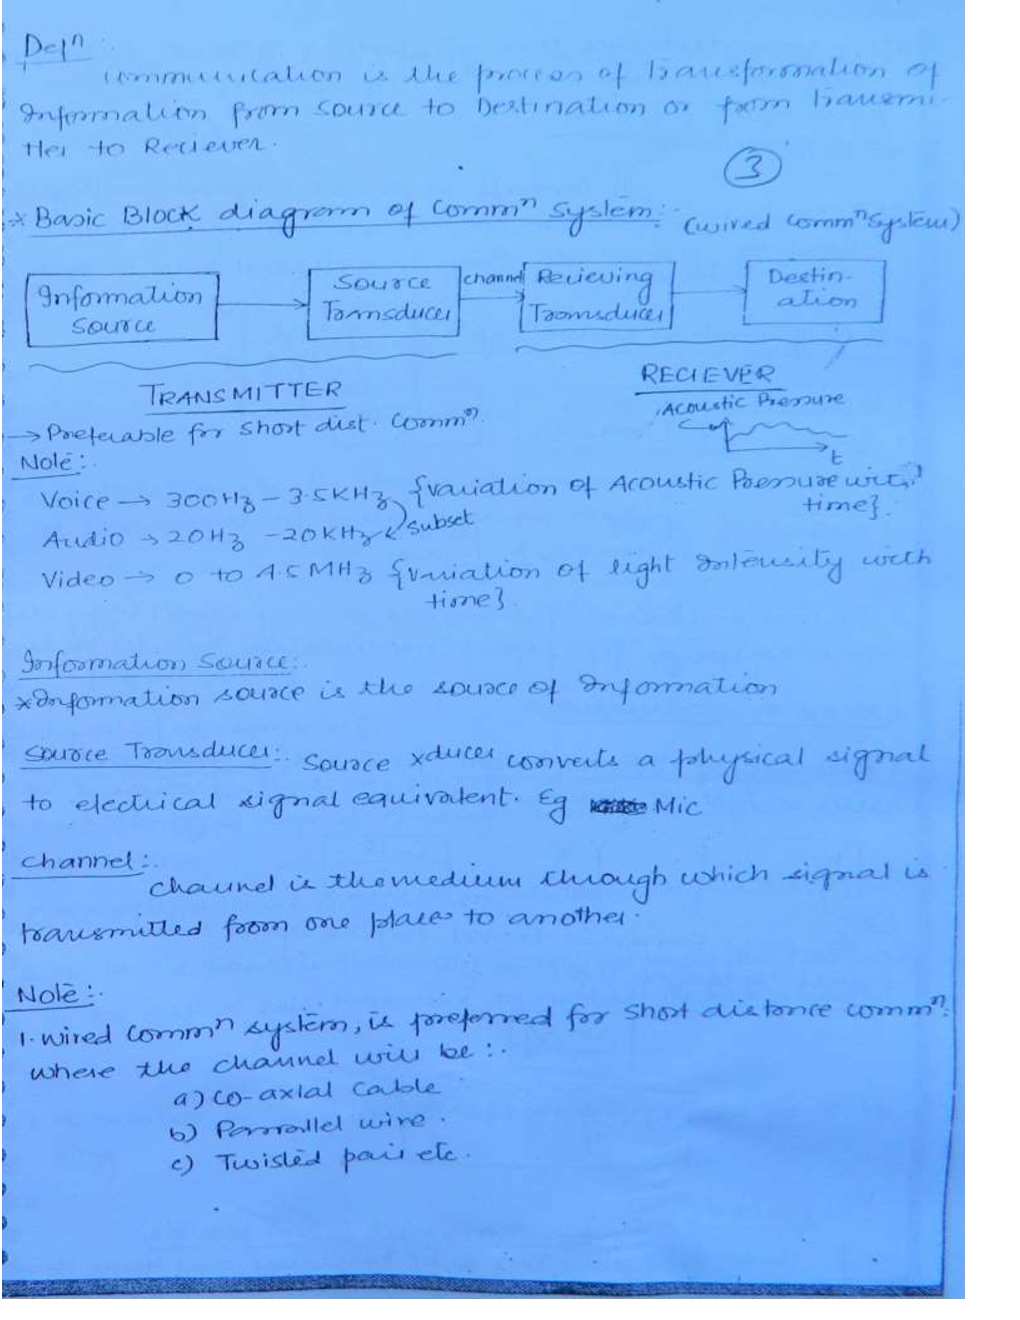 Defⁿ :
communication is the process of transformation of
Information from source to Destination or from transmi-
tter to Reciever.
3
* Basic Block diagram of commⁿ system:- (wired commⁿ system)
Information
Source
Source
Transducer
channel
Recieving
Transducer
Destin-
ation
TRANSMITTER
RECIEVER
→ Preferable for short dist. commⁿ.
Acoustic Pressure
t
Note:-
Voice → 300Hz - 3.5KHz {variation of Acoustic Pressure with
time}.
subset
Audio → 20Hz - 20KHz
Video → 0 to 4.5 MHz {variation of light Intensity with
time}.
Information Source:-
* Information source is the source of Information
Source Transducer:- Source xducer converts a physical signal
to electrical signal equivalent. Eg Mic
Channel:-
Channel is the medium through which signal is
transmitted from one place to another.
Note:-
1. wired commⁿ system, is preferred for short distance commⁿ.
where the channel will be :-
a) co-axial cable
b) Parrallel wire.
c) Twisted pair etc.